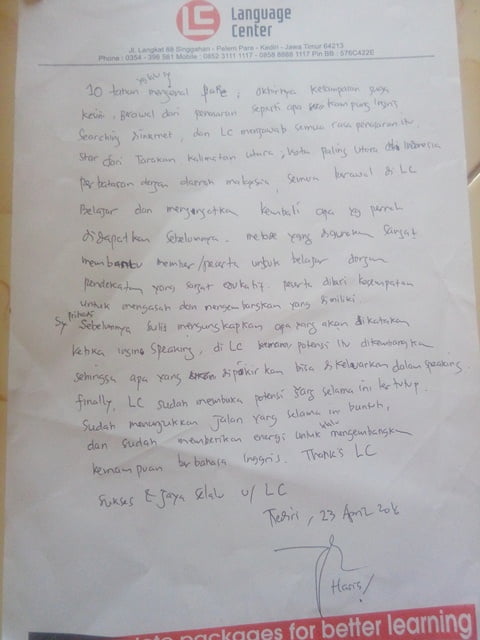 LC
Language
Center
Jl. Langkat 88 Singgahan - Pelem Pare - Kediri - Jawa Timur 64213
Phone : 0354 - 396 581 Mobile : 0852 3111 1117 - 0858 8888 1117 Pin BB : 576C422E
yg lalu
10 tahun mengenal pare, akhirnya kesampaian juga
kesini, Berawal dari penasaran seperti apa kampung Inggris
Searching diinternet, dan LC menjawab semua rasa penasaran itu.
Star dari Tarakan Kalimatan utara, kota paling utara Indonesia
perbatasan dengan daerah malaysia, semua berawal di LC
Belajar dan mengingatkan kembali apa yg pernah
didapatkan sebelumnya. metode yang digunakan sangat
membantu member/peserta untuk belajar dengan
pendekatan yang sangat edukatif. peserta diberi kesempatan
untuk mengasah dan mengembangkan yang dimiliki.
pribadi
Sy Sebelumnya sulit mengungkapkan apa yang akan dikatakan
ketika ingin speaking, di LC potensi itu dikembangkan
sehingga apa yang dipikirkan bisa dikeluarkan dalam speaking.
finally, LC sudah membuka potensi yang selama ini tertutup.
Sudah menunjukkan jalan yang selama ini buntuh,
dan sudah memberikan energi untuk mengembangkan
kemampuan berbahasa Inggris. Thank's LC
Sukses & Jaya selalu u/ LC
Kediri, 23 April 2016
Haris
packages for better learning